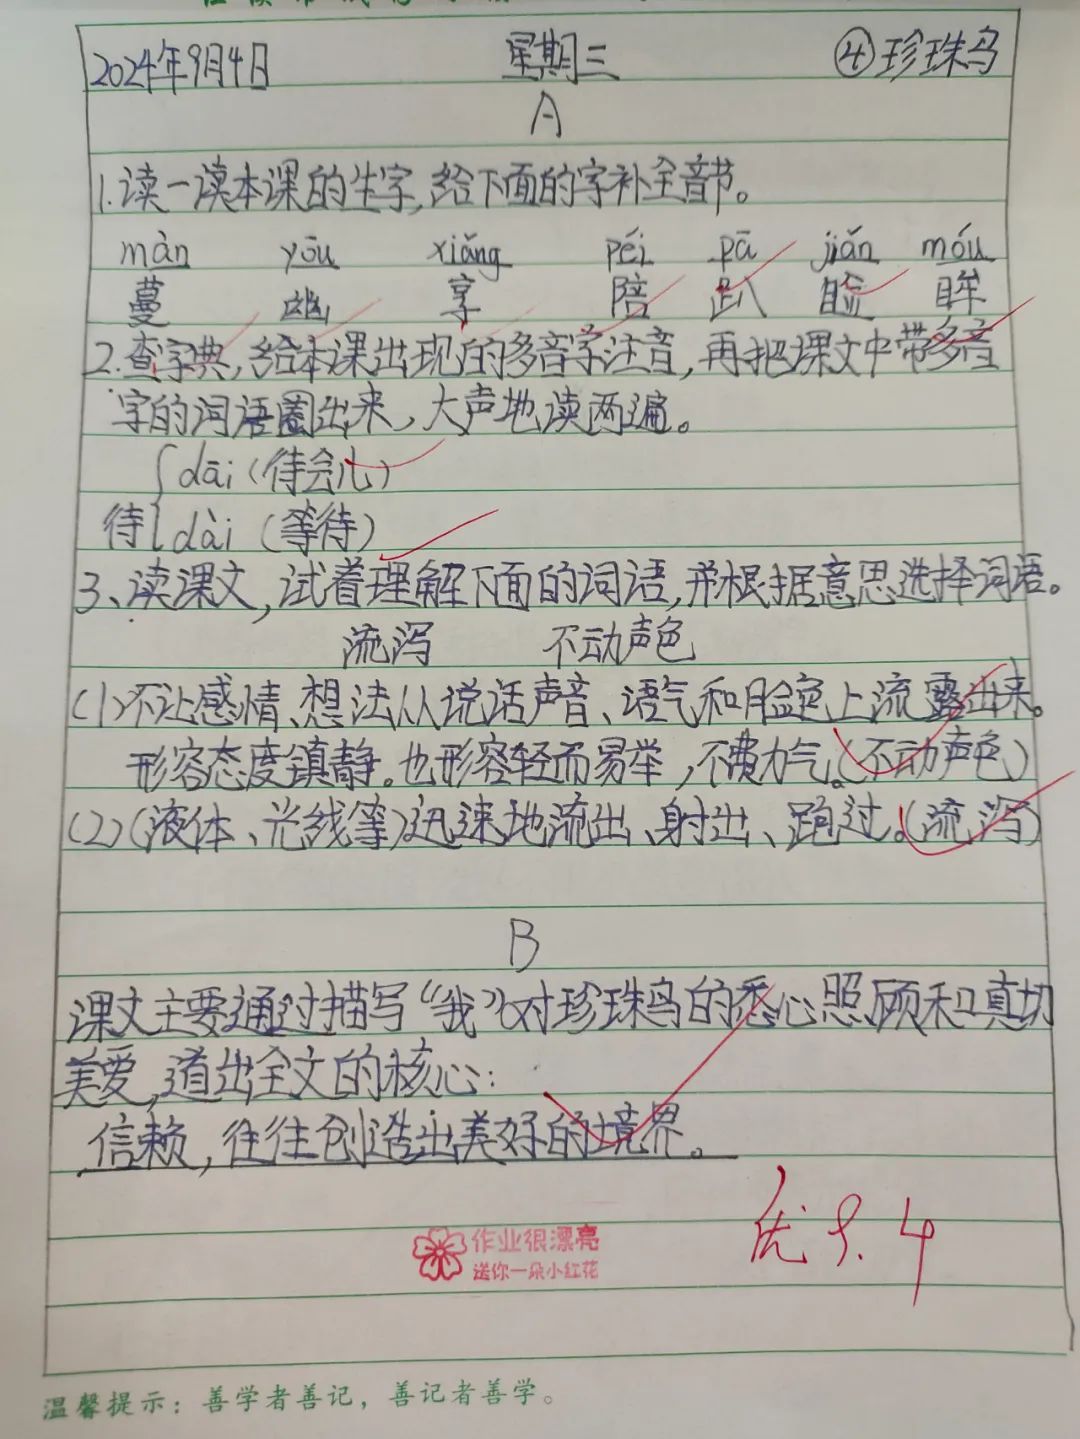 2024年9月4日 星期三 ④珍珠鸟
A
1.读一读本课的生字,给下面的字补全音节。
màn yōu xiǎng péi pā jiǎn móu
蔓 幽 享 陪 趴 睑 眸
2.查字典,给本课出现的多音字注音,再把课文中带多音
字的词语圈出来,大声地读两遍。
dāi(待会儿)
待
dài(等待)
3、读课文,试着理解下面的词语,并根据意思选择词语。
流泻 不动声色
(1)不让感情、想法从说话声音、语气和脸色上流露出来。
形容态度镇静。也形容轻而易举,不费力气。(不动声色)
(2)(液体、光线等)迅速地流出、射出、跑过。(流泻)
B
课文主要通过描写“我”对珍珠鸟的悉心照顾和真切
美爱,道出全文的核心:
信赖,往往创造出美好的境界。
优 9.4
作业很漂亮
送你一朵小红花
温馨提示:善学者善记,善记者善学。